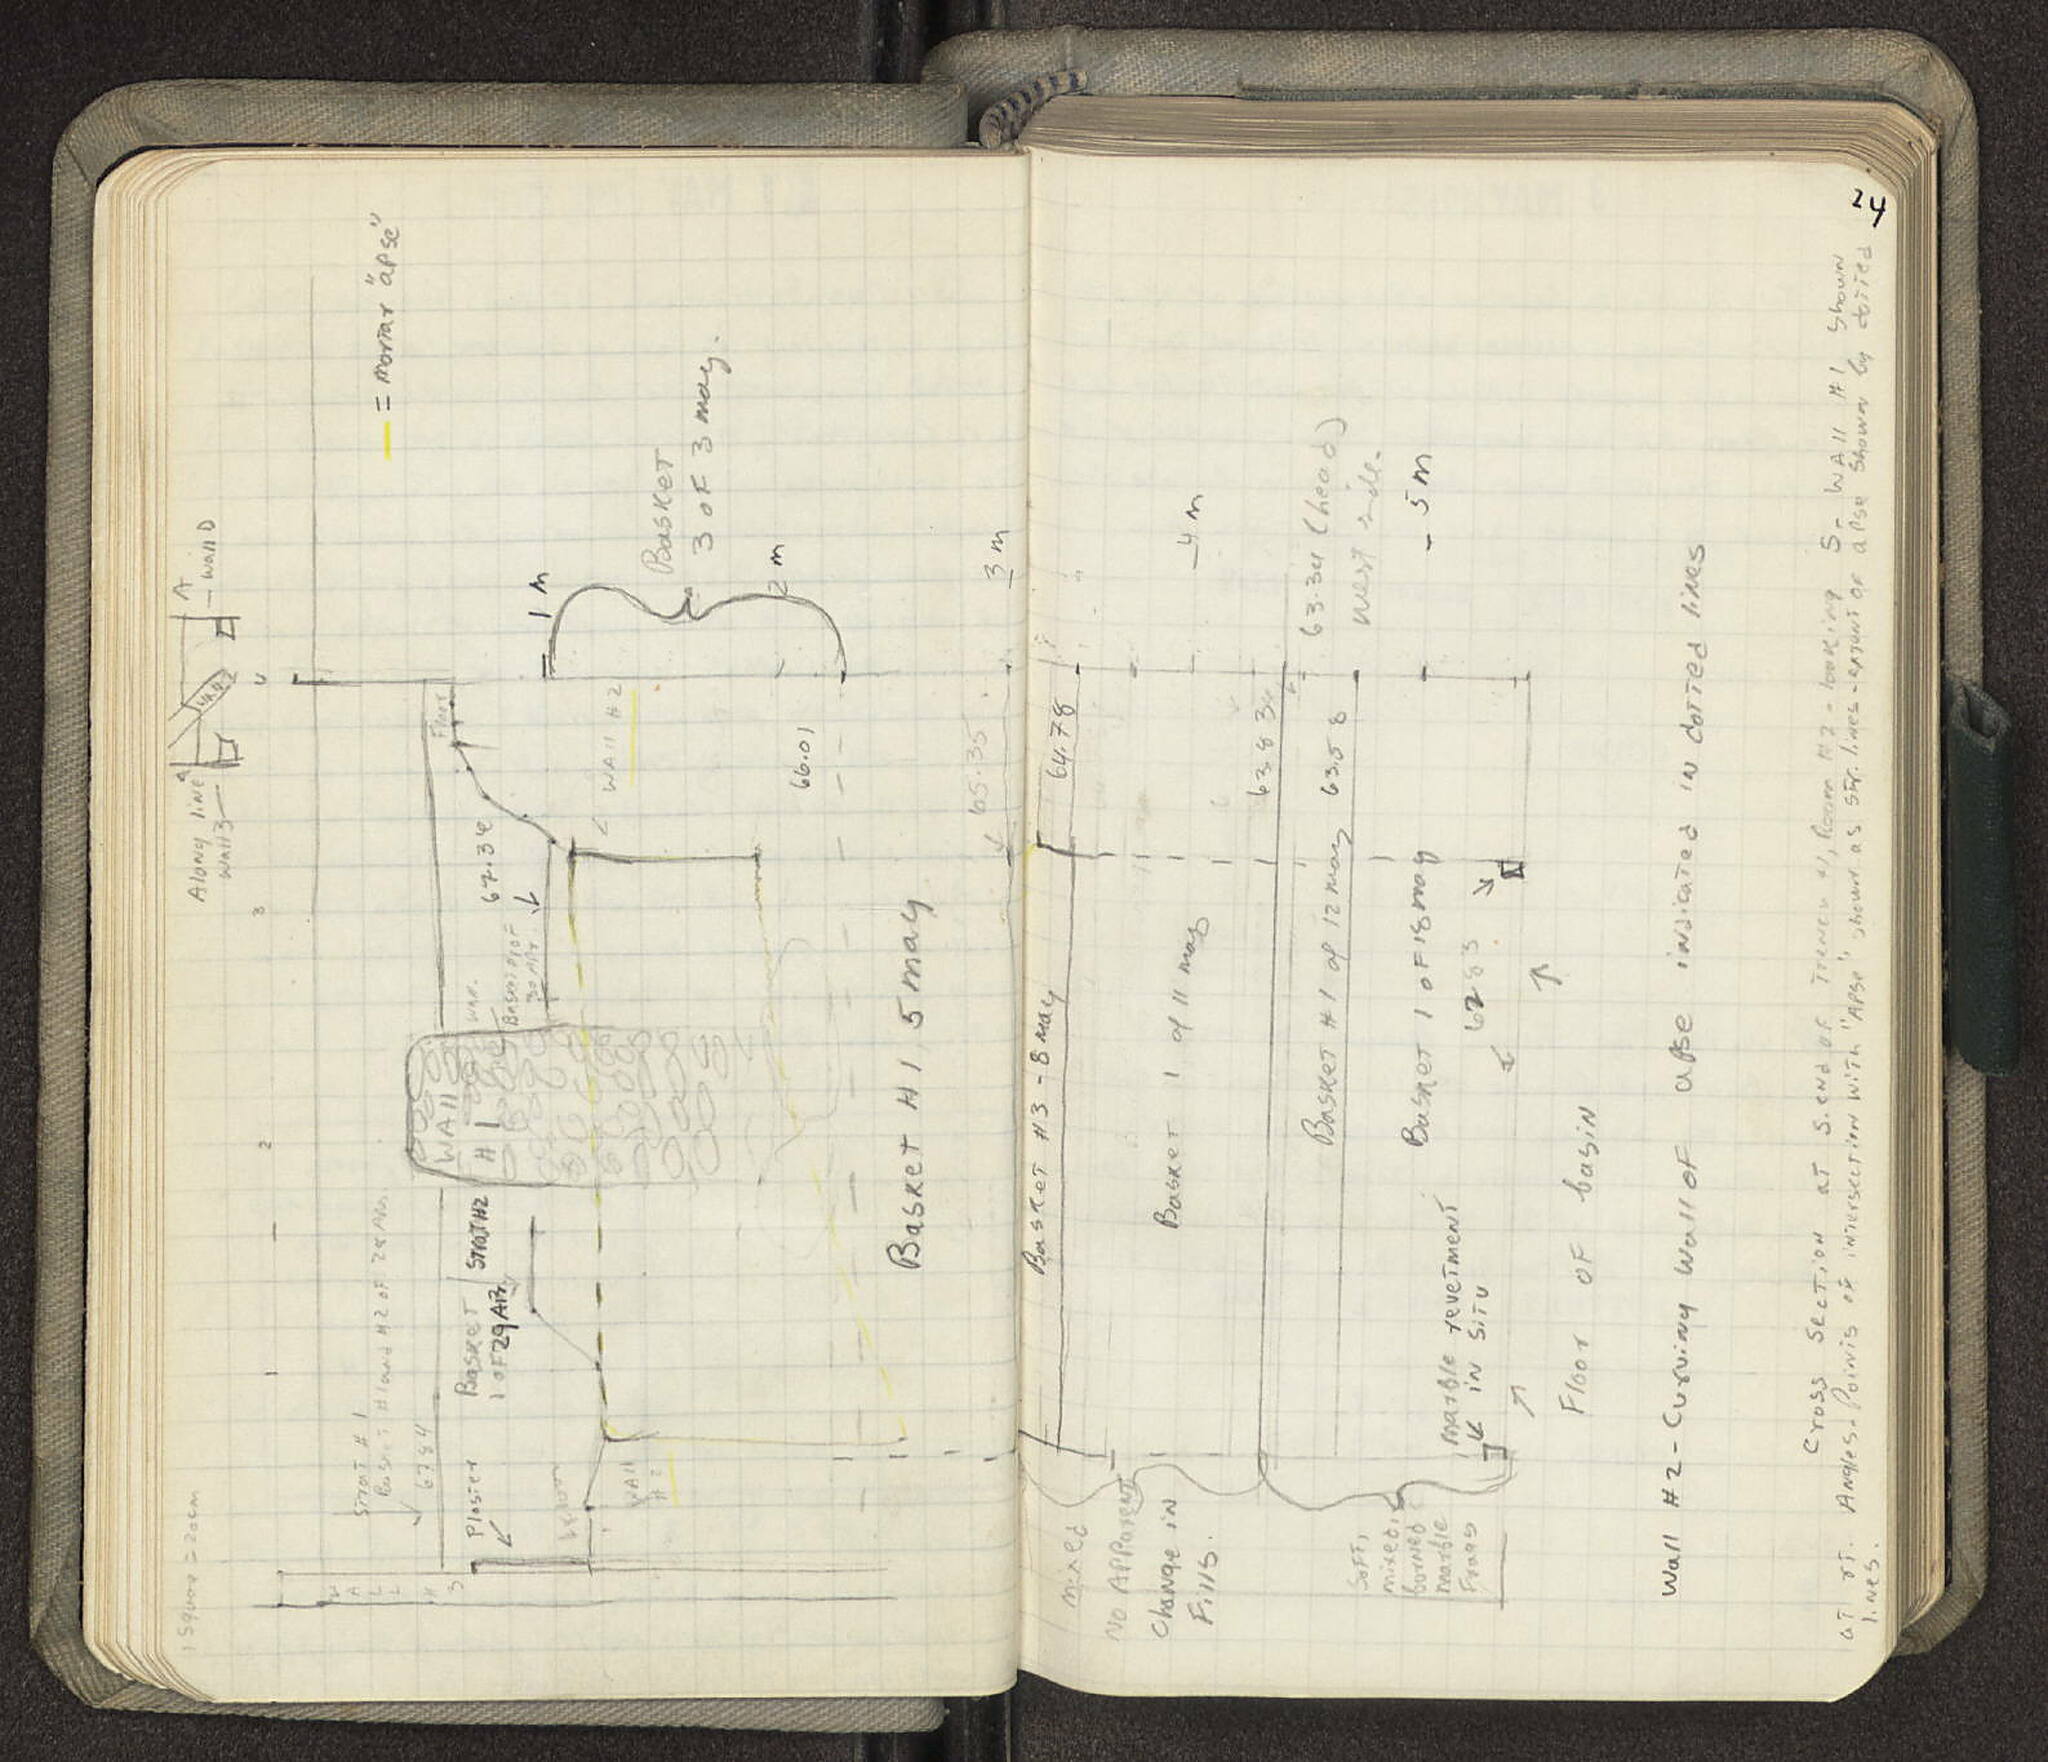 24
1 square = 20cm
Along line A
Wall 3
A
Wall D
= mortar "apse"
2
3
4
WALL # 3
STRAT # 1
Basket #1 and #2 of 29 Apr.
67.84
Plaster
Basket
1 of 29 Apr.
STRAT #2
WALL
# 1
Basket 1 of
30 Apr.
67.34
Floor
Wall
# 2
Wall # 2
1 m
Basket
3 of 3 may.
2 m
66.01
Basket # 1, 5 may
65.35
3 m
Basket #3 - 8 may
64.78
mixed
No Apparent
Change in
Fills.
Basket 1 of 11 may
4 m
63.83
Basket #1 of 12 may 63.58
63.34 (head)
west side.
Soft,
mixed,
burned
marble
Frags
Basket 1 of 18 may
5 m
62.83
marble revetment
in situ
Floor of basin
Wall #2 - Curving wall of apse indicated in dotted lines
Cross section at S. end of Trench
looking S - Wall #1 shown
at rt. Angles. Points of intersection with "Apse" shown as str. lines - extent of apse shown by dotted
lines.